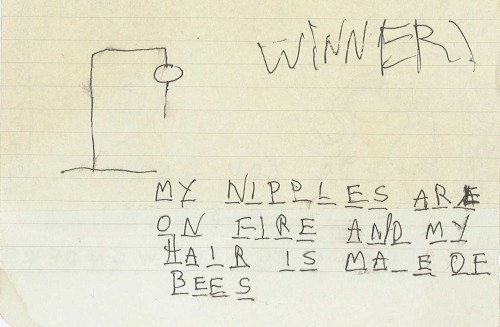 WINNER!
MY NIPPLES ARE
ON FIRE AND MY
HAIR IS MA_E OF
BEES